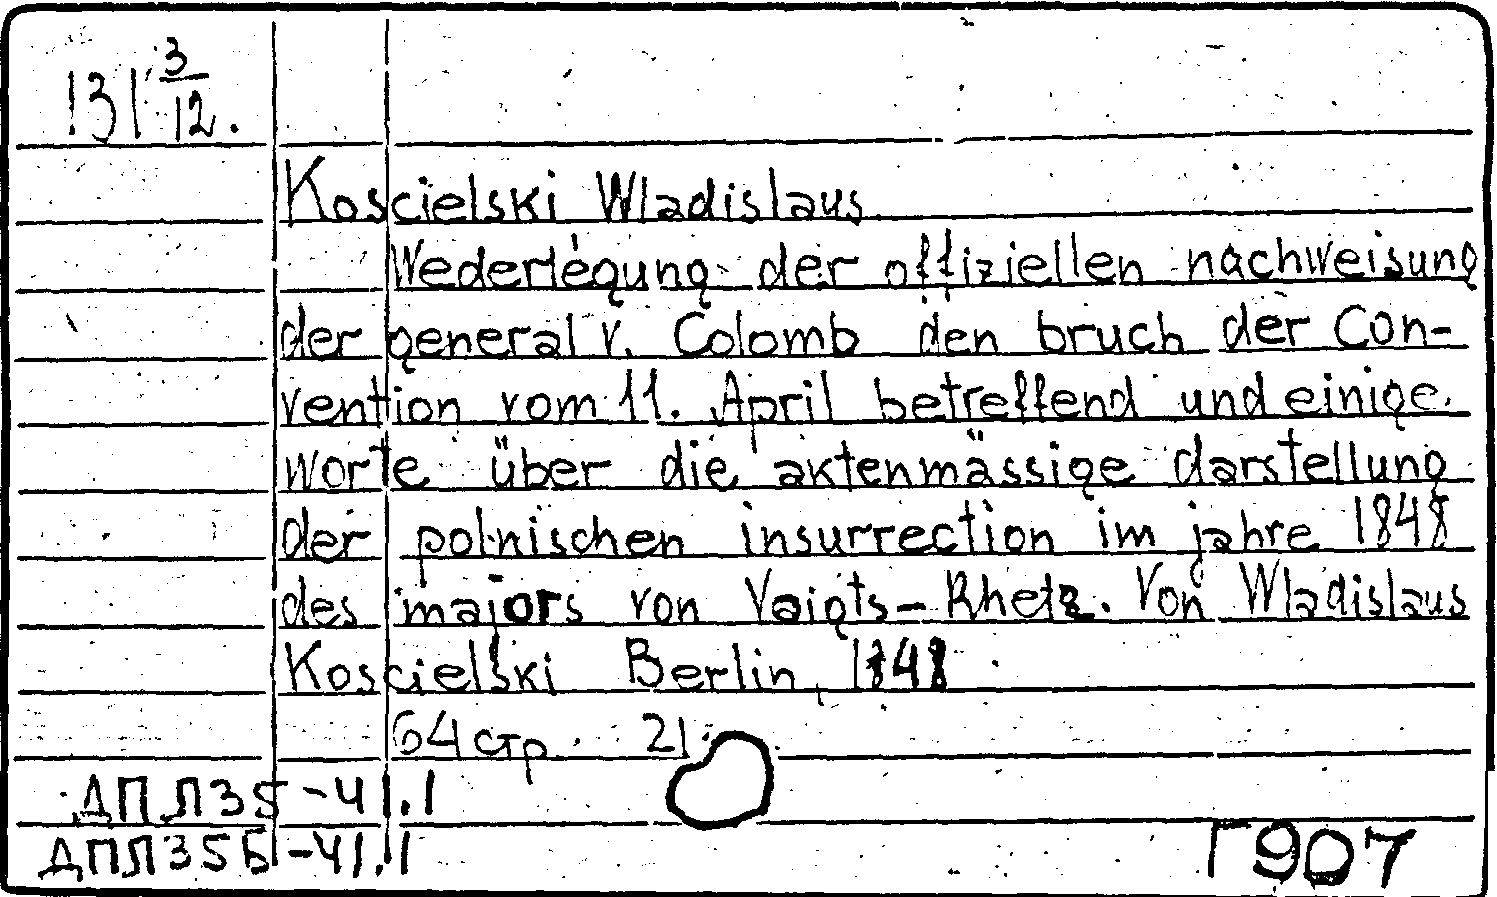 131 3/12.
Koscielski Wladislaus
Wederlegung der offiziellen nachweisung
der general v. Colomb den bruch der Con-
vention vom 11. April betreffend und einige
worte über die aktenmässige darstellung
der polnischen insurrection im jahre 1848
des majors von Voigts-Rhetz. Von Wladislaus
Koscielski Berlin, 1848
64 стр. 21
ДПЛ35-41.1
ДПЛ35Б-41.1
Г907